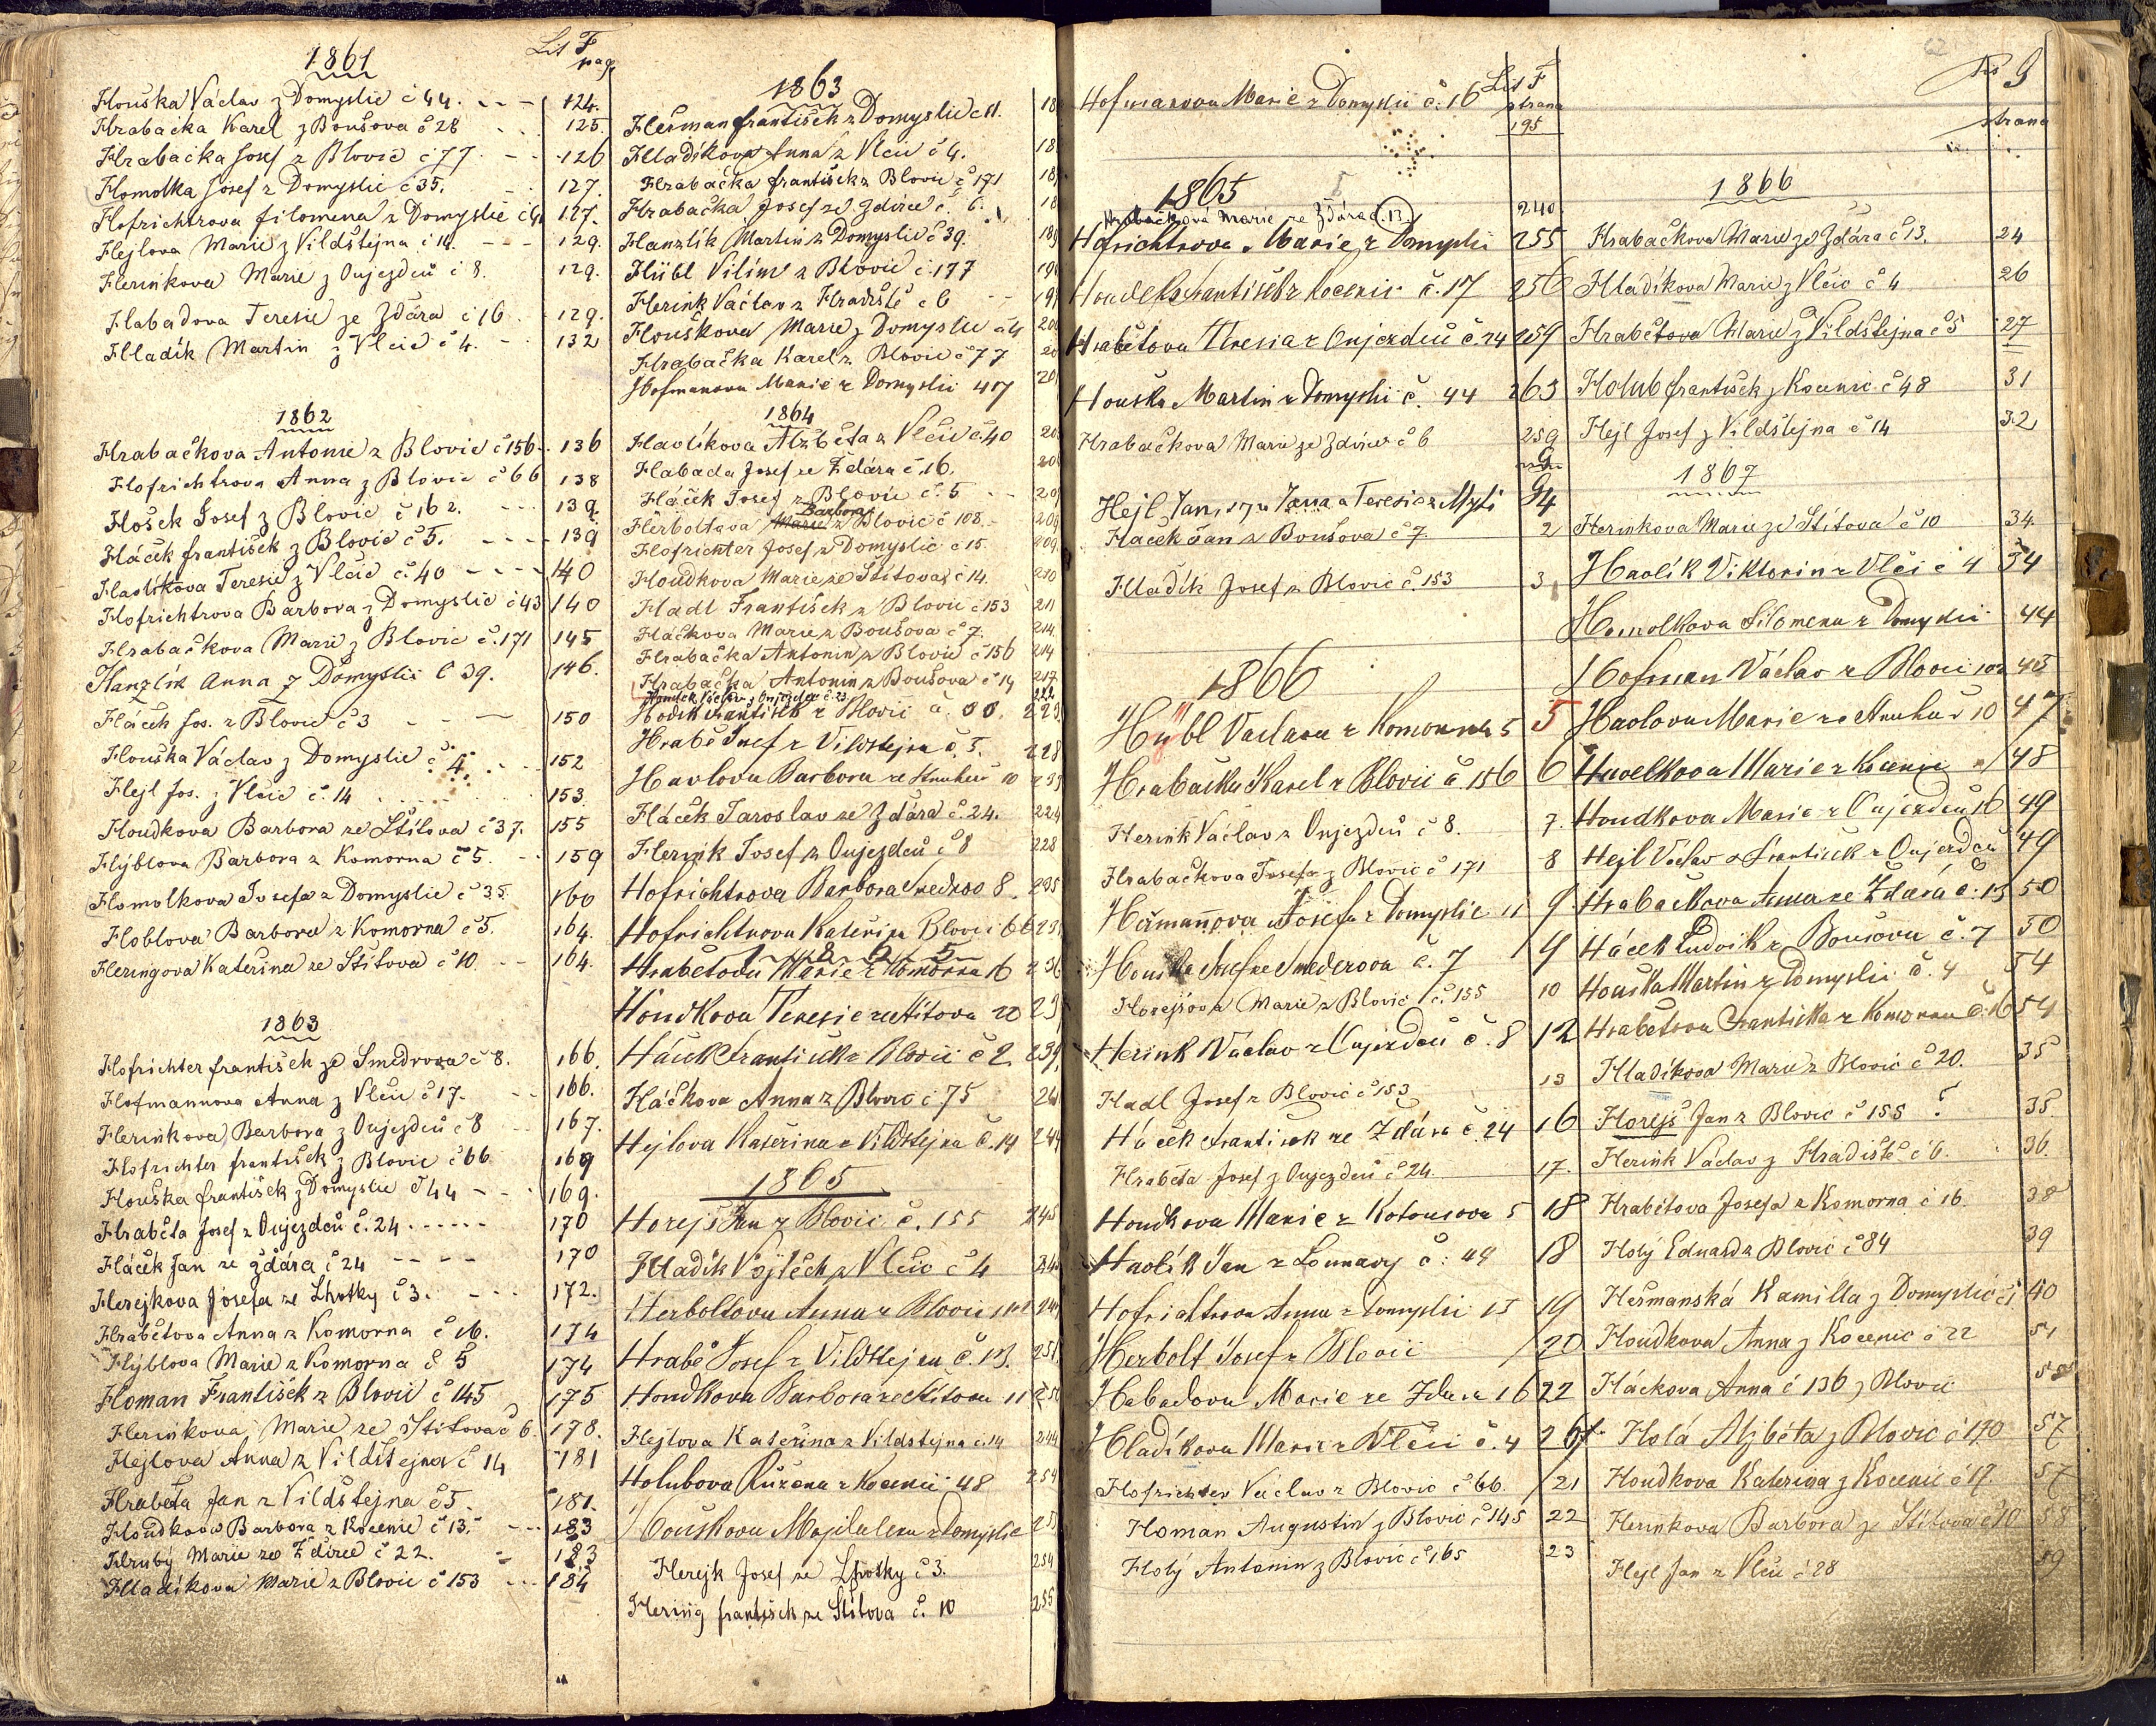 Lit F
pag.
1861
Houška Václav z Domyslic č 44. 124.
Hrabačka Karel z Boušova č 28 125.
Hrabačka Josef z Blovic č 77. 126
Homolka Josef z Domyslic č 35. 127.
Hofrichtrova filomena z Domyslic 127.
Hejlova Marie z Vildštejna č 14. 129.
Herinkova Marie z Oujezdců č 8. 129.
Habadova Teresie ze Zdára č 16 129.
Hladík Martin z Vlcic č 4. 132
1862
Hrabačkova Antonie z Blovic č 156. 136
Hofrichtrova Anna z Blovic č 66 138
Hošek Josef z Blovic č 162. 139.
Háček františek z Blovic č 5. 139
Havlíkova Teresie z Vlcic č. 40 140
Hofrichtrova Barbora z Domyslic č 43 140
Hrabačkova Marie z Blovic č. 171 145
Hanzlík Anna z Domyslic č 39. 146.
Háček Jos. z Blovic č 3 150
Houška Václav z Domyslic č 4. 152
Hejl Jos. z Vlcic č. 14 153.
Houdkova Barbora ze Štítova č 37. 155
Hýblova Barbora z Komorna č 5. 159
Homolkova Josefa z Domyslic č 35. 160
Hoblova Barbora z Komorna č 5. 164.
Heringova Kateřina ze Štítova č 10 164.
1863
Hofrichter františek ze Smedrova č 8. 166.
Hofmannova Anna z Vlcic č 17. 166.
Herinkova Barbora z Oujezdců č 8 167.
Hofrichter františek z Blovic č 66 169
Houška františek z Domyslic č 44 169.
Hrabéta Josef z Oujezdců č. 24 170
Háček Jan ze Zdára č 24 170
Herejkova Josefa ze Lhotky č 3. 172.
Hrabětova Anna z Komorna č 16. 174
Hýblova Marie z Komorna č 5 174
Homan František z Blovic č 145 175
Herinkova Marie ze Štitova č 6. 178.
Hejlova Anna z Vildštejna č 14 181
Hrabéta Jan z Vildštejna č 5. 181.
Houdkova Barbora z Kocenic č 13. 183
Hrubý Marie ze Zdírce č 22. 183
Hladíkova Marie z Blovic č 153 184
1863
Heřman františek z Domyslic č 11. 18
Hladíkova Anna z Vlcic č 4. 18
Hrabačka františek z Blovic č 171 18
Hrabačka Josef ze Zdírce č. 6. 18
Hanzlík Martin z Domyslic č 39. 189
Hübl Vilím z Blovic č. 177 19
Herink Václav z Hradiště č 6 19
Houškova Marie z Domyslic č 4 20
Hrabačka Karel z Blovic č 77 20
Hofmanova Marie z Domyslic 47 20
1864
Havlíkova Alzběta z Vlčic č 40 20
Habada Josef ze Zdára č. 16. 20
Háček Josef z Blovic č. 5 20
Barbora
Herboltova Marie z Blovic č 108. 209
Hofrichter Josef z Domyslic č 15. 209.
Houdkova Marie ze Štítova č 14. 210
Hadl František z Blovic č 153 211
Háčkova Marie z Boušova č 7. 214.
Hrabačka Antonin z Blovic č 156 214
Hrabačka Antonin z Boušova č 14 217
Houdek Václav z Oujezdce č. 23 222
Hošek František z Blovic č. 223
Hrabě Josef z Vildstejna č. 5. 228
Havlova Barbora ze Struhař 10
Háček Jaroslav ze Zdára č. 24. 224
Herink Josef z Oujezdců č 8 228
Hofrichtrova Barbora Smedrov 8. 235
Hofrichtrova Kateřina Blovic 66 23
1865
Hrabětova Marie z Komorna 16 236
Houdkova Teresie ze Štítova 20 23
Háček František z Blovic č 2. 239
Háčkova Anna z Blovic č 75 24
Hejlova Kateřina z Vildstejna č. 14 244
1865
Horejš Jan z Blovic č. 155 245
Hladík Vojtěch z Vlčic č 4 24
Herboltova Anna z Blovic 24
Hrabě Josef z Vildstejna č. 13. 251
Houdkova Barbora ze Štítova 11 250
Hejlova Kateřina z Vildstejna č. 14 244
Holubova Růžena z Kocenic 48 254
Houškova Majdalena z Domyslic 25
Herejk Josef ze Lhotky č 3. 254
Hering františek ze Štítova č. 10 255
Lit F
strana
Hofmanova Marie z Domyslic č. 16 195
1865
Hrabačková Marie ze Zdára č. 13. 240
Hofrichtrova Marie z Domyslic 255
Houdek František z Kocenic č. 17 256
Hrabětova Theresia z Oujezdců č. 24 259
Houška Martin z Domyslic č. 44 263
Hrabačkova Marie ze Zdírce č 6 259
G
Hejl Jan, syn Jana a Teresie z Myti 94
Háček Jan z Boušova č 7. 2
Hladík Josef z Blovic č. 153 3
1866
Hübl Vaclava z Komorna 5 5
Hrabačka Karel z Blovic č. 156 6
Herink Václav z Oujezdců č 8. 7.
Hrabačkova Josefa z Blovic č 171 8
Heřmanova Josefa z Domyslic 11 9
Houška Josef ze Smederova č. 7 9
Horejšova Marie z Blovic č. 155 10
Herink Vaclav z Oujezdců č. 8 12
Hadl Josef z Blovic č 153 13
Háček František ze Zdára č. 24 16
Hrabéta Josef z Oujezdců č 24. 17.
Houdkova Marie z Kotousova 5 18
Havlík Jan z Lounavy č. 49 18
Hofrichtrova Anna z Domyslic 15 19
Herbolt Josef z Blovic 20
Habadova Marie ze Zdára 16 22
Hladíkova Marie z Vlčic č. 4 26
Hofrichter Václav z Blovic č 66. 21
Homan Augustin z Blovic č 145 22
Holý Antonin z Blovic č 165 23
strana
1866
Hrabačkova Marie ze Zdára č 13. 24
Hladíkova Marie z Vlčic č 4 26
Hrabětova Marie z Vildštejna č 5 27
Holub františek z Kocenic č 48 31
Hejl Josef z Vildštejna č 14 32
1867
Herinkova Marie ze Štítova č 10 34.
Havlík Viktorin z Vlči č 4 34
Homolkova Filomena z Domyslic 44
Hofman Václav z Blovic 102 45
Havlova Marie ze Struhař 10 47
Havelkova Marie z Kocenic 48
Houdkova Marie z Oujezdců 16 49
Hejl Václav a František z Oujezdců 49
Hrabačkova Anna ze Zdára č. 13 50
Háček Ludvik z Boušova č. 7 50
Houška Martin z Domyslic č. 4 54
Hrabětova Františka z Komorna č. 16 54
Hladíkova Marie z Blovic č 20. 35
Horejš Jan z Blovic č 155 ? 35
Herink Václav z Hradiště č 6. 36.
Hrabětova Josefa z Komorna č 16. 38
Holý Eduard z Blovic č 84 39
Heřmanská Kamilla z Domyslic 40
Houdkova Anna z Kocenic č 22 51
Háckova Anna č 136 z Blovic
Holá Alzběta z Blovic č 170 57
Houdkova Katerina z Kocenic č 17. 57
Herinkova Barbora ze Štítova č 10 58
Hejl Jan z Vlcic č 28 59